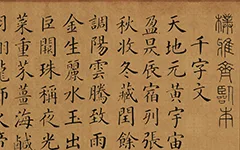 千字文
天地元黃宇宙
盈昃辰宿列
秋收冬藏閏餘
調陽雲騰致雨
金生麗水玉出
巨闕珠稱夜光
菜重芥薑海鹹
翔龍師火帝